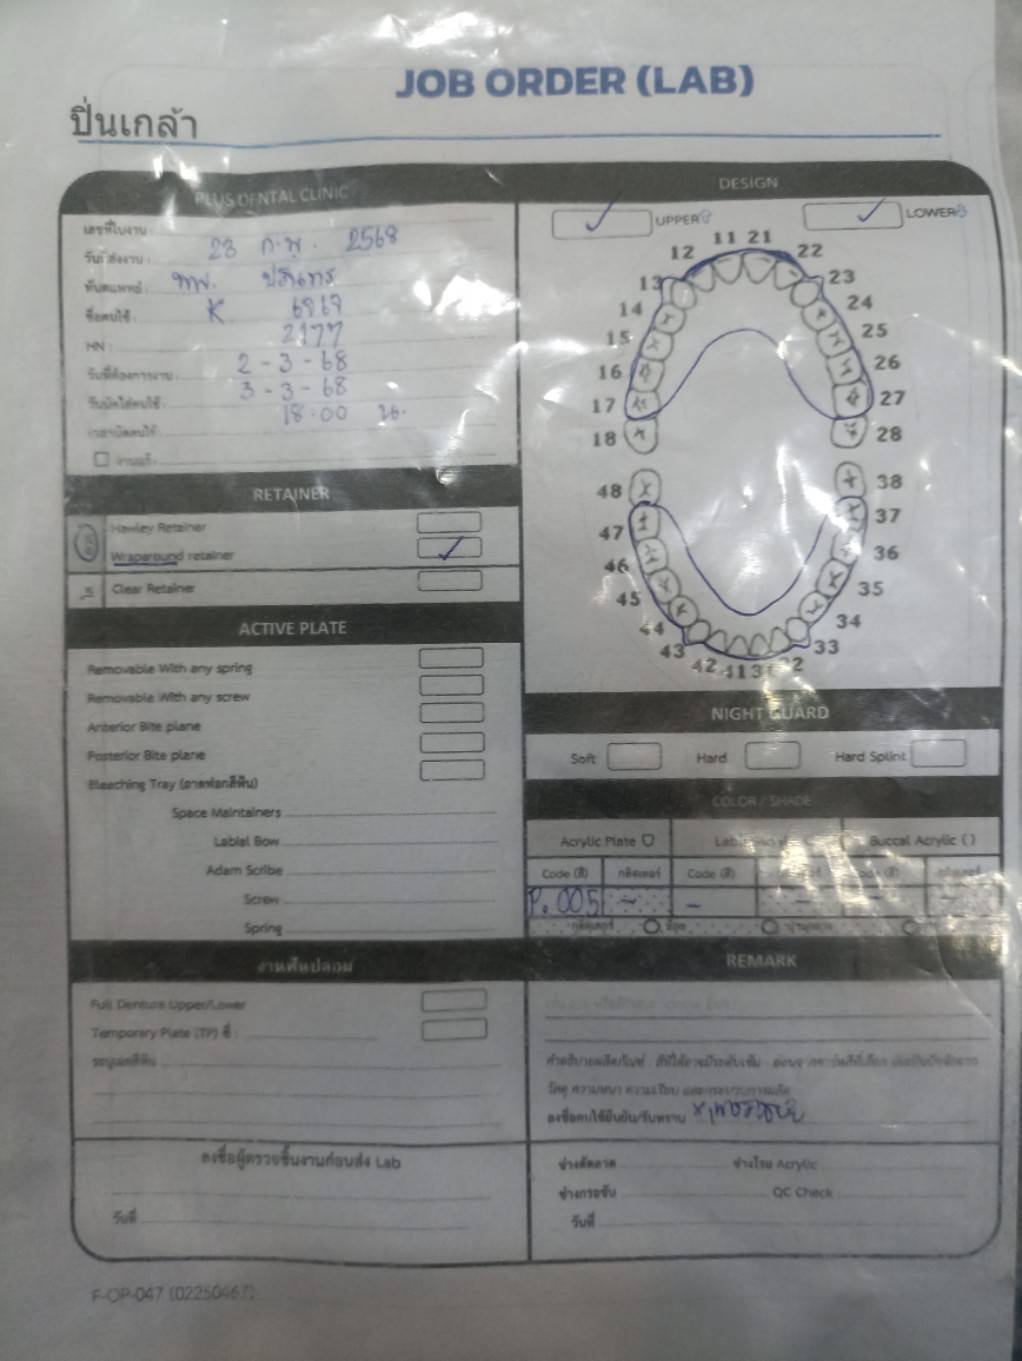 JOB ORDER (LAB)
ปิ่นเกล้า
PLUS DENTAL CLINIC
เลขที่ใบงาน :
วันที่ส่งงาน : 23 ก.พ. 2568
ทันตแพทย์ : ทพ.
ชื่อคนไข้ : K 6969
HN : 2177
วันที่ต้องการงาน : 2 - 3 - 68
วันนัดใส่คนไข้ : 3 - 3 - 68
เวลานัดคนไข้ : 18:00 น.
งานแก้ :
RETAINER
Hawley Retainer
Wraparound retainer ✓
Clear Retainer
ACTIVE PLATE
Removable With any spring
Removable With any screw
Anterior Bite plane
Posterior Bite plane
Bleaching Tray (ถาดฟอกสีฟัน)
Space Maintainers
Labial Bow
Adam Scribe
Screw
Spring
งานฟันปลอม
Full Denture Upper/Lower
Temporary Plate (TP) ซี่ :
ระบุเฉดสีฟัน
ลงชื่อผู้ตรวจชิ้นงานก่อนส่ง Lab
วันที่
DESIGN
✓ UPPER ✓ LOWER
11 21
12 22
13 23
14 24
15 25
16 26
17 27
18 28
48 38
47 37
46 36
45 35
44 34
43 33
42 41 31 32
NIGHT GUARD
Soft Hard Hard Splint
COLOR / SHADE
Acrylic Plate Buccal Acrylic ( )
Code (สี) กลิตเตอร์ Code (สี) Code (สี) กลิตเตอร์
P. 005 - - - - -
กลิตเตอร์
REMARK
คำอธิบายผลิตภัณฑ์ : สีที่ได้อาจมีระดับเข้ม - อ่อน
วัสดุ ความหนา ความเรียบ และกระบวนการผลิต
ลงชื่อคนไข้ยืนยัน/รับทราบ
ช่างดัดลวด ช่างโรย Acrylic
ช่างกรอขัด QC Check
วันที่
F-OP-047 (02250467)